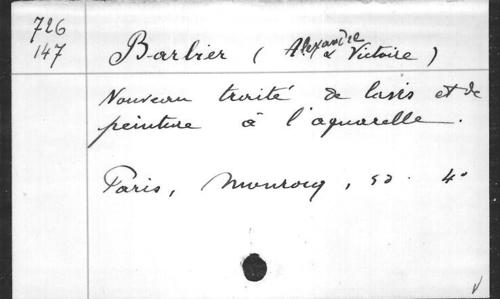 726
147
Barbier (Alexandre & Victoire)
Nouveau traité de lavis et de
peinture à l'aquarelle.
Paris, Monrocq, sd. 4°